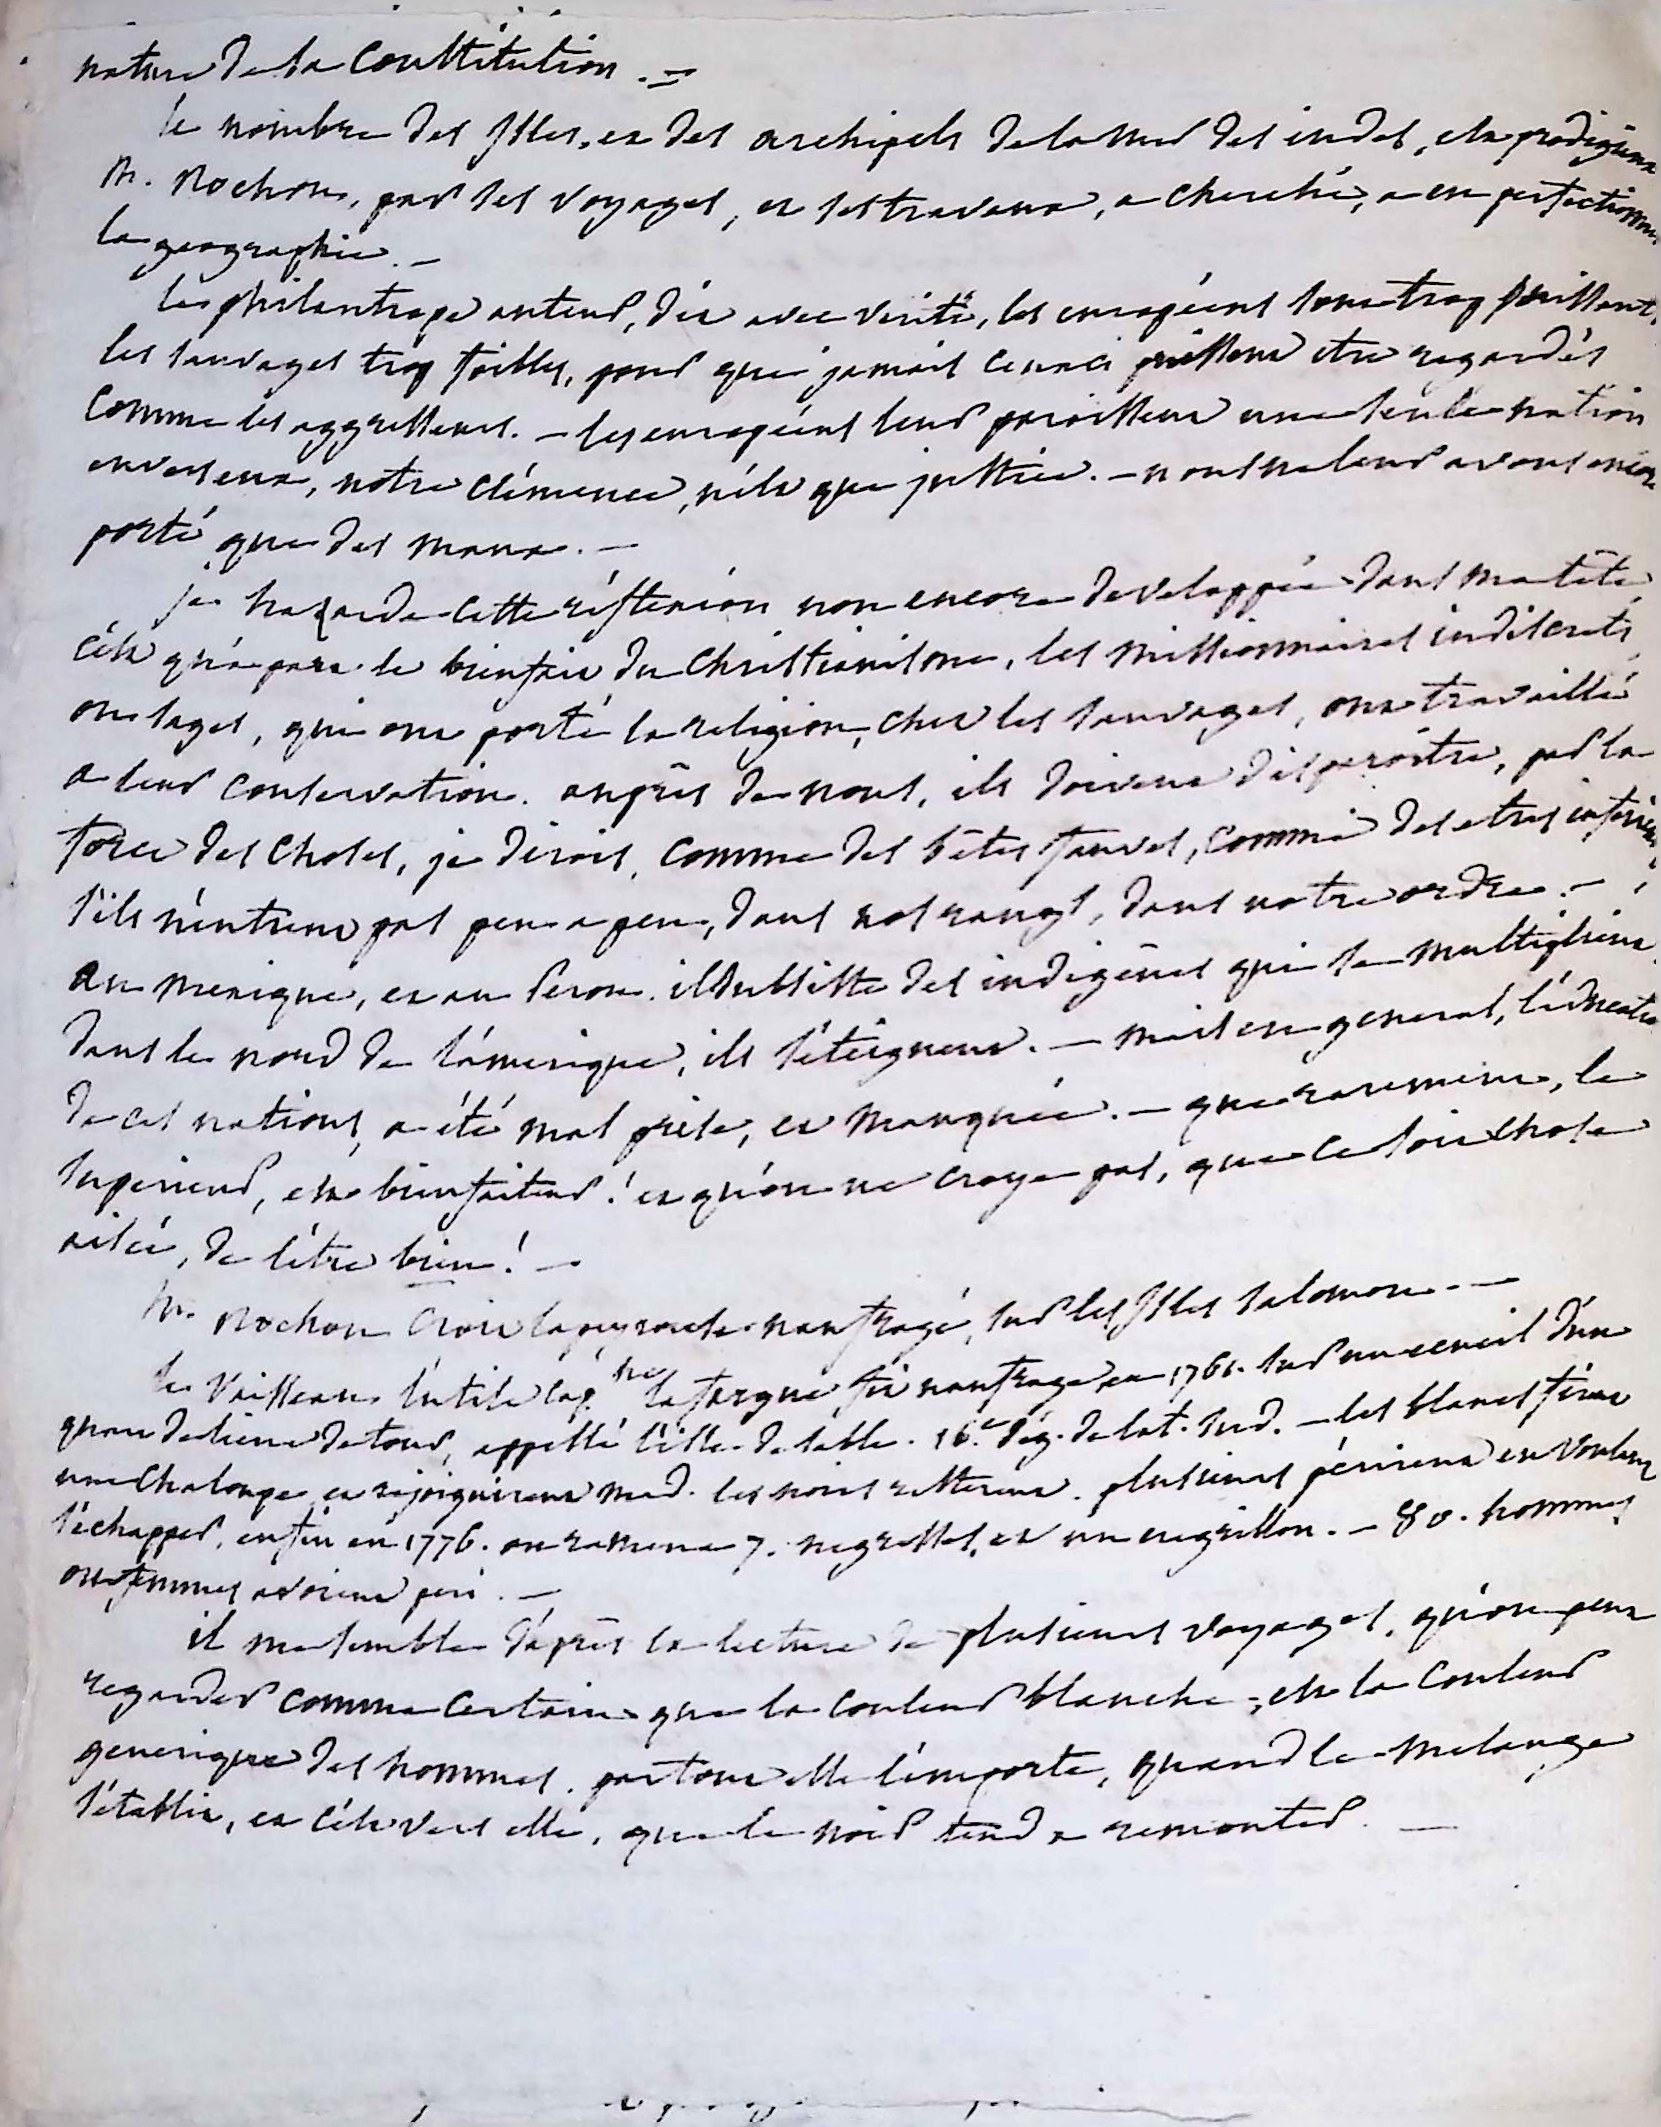 nature de la Constitution. —
le nombre des Isles, et des archipels de la mer des indes, est prodigieux
M. Rochon, par ses voyages, et ses travaux, a cherché, a en perfectionner
la geographie. —
le philantrope auteur, dit avec verité, les européens sont trop puissants,
les sauvages trop foibles, pour que jamais ceux ci puissent etre regardés
comme les aggresseurs. — les européens leur paroissent une seule nation
envers eux, notre clémence, n'est que justice. — nous ne leur avons encore
porté que des maux. —
je hazarde cette réflexion non encore developpée dans ma tête,
c'est qu'a part le bienfait du Christianisme, les missionnaires indiscrets,
ou sages, qui ont porté la religion, chez les sauvages, ont travaillé
a leur conservation. auprès de nous, ils doivent disparoitre, par la
force des choses, je dirois, comme des bêtes fauves, comme des etres inférieurs,
s'ils n'entrent pas peu a peu, dans nos rangs, dans notre ordre. —
au mexique, et au Perou. il subsiste des indigènes qui se multiplient.
dans le nord de l'amerique, ils s'éteignent. — mais en general, l'éducation
de ces nations, a été mal prise, et manquée. — que rarement, le
superieur, est bienfaiteur! et qu'on ne croye pas, que ce soit chose
aisée, de l'être bien! —
M. Rochon croit lapeyrouse naufragé, sur les Isles Salomon. —
le vaisseau l'utile cap.ne lafargue, fit naufrage en 1761. sur un ecueil d'un
quart de lieue de tour, appellé l'isle de sable. 16.e deg. de lat. sud. — les blancs firent
une chaloupe et rejoignirent mad. les noirs resterent. plusieurs périrent en voulant
s'échapper, enfin en 1776. on ramena 7. negresses, et un negrillon. — 80. hommes
ou femmes avoient peri. —
il me semble d'après la lecture de plusieurs voyages, qu'on peut
regarder comme certain que la couleur blanche, est la couleur
generique des hommes. partout elle l'emporte, quand le melange
s'établit, et c'est vers elle, que le noir tend a remonter. —